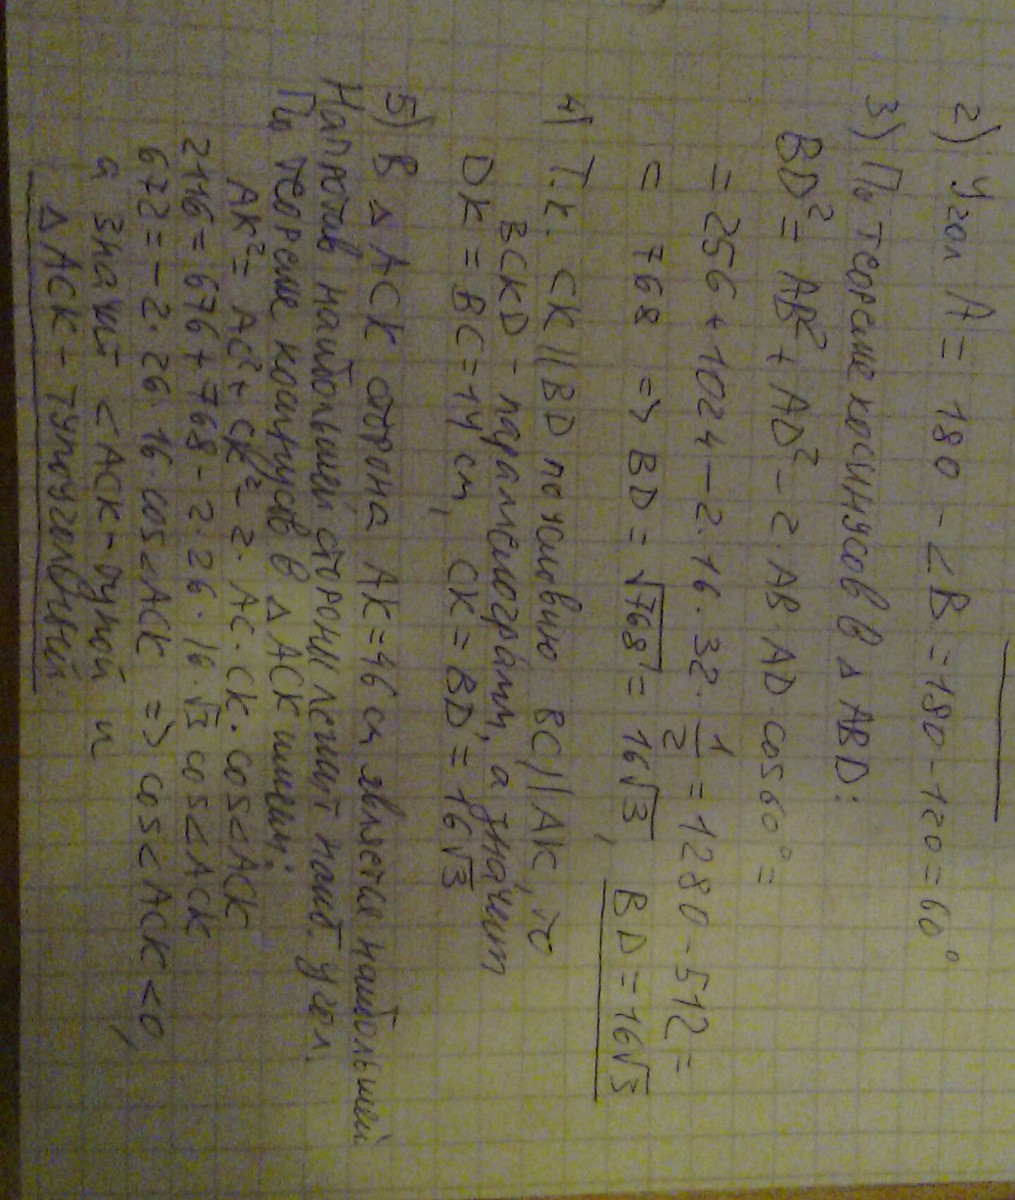 2) Угол A = 180 - <B = 180 - 120 = 60°
3) По теореме косинусов в Δ ABD:
BD² = AB² + AD² - 2·AB·AD·cos60° =
= 256 + 1024 - 2·16·32·1/2 = 1280 - 512 =
= 768 => BD = √768 = 16√3, BD = 16√3
4) Т.к. CK || BD по условию BC || AK, то
BCKD - параллелограмм, а значит
DK = BC = 14 см, CK = BD = 16√3
5) В Δ ACK сторона AK = 46 см является наибольшей
Напротив наибольшей стороны лежит наиб. угол.
По теореме косинусов в Δ ACK имеем:
AK² = AC² + CK² - 2·AC·CK·cos<ACK
2116 = 676 + 768 - 2·26·16·√3 cos<ACK
672 = -2·26·16·cos<ACK => cos<ACK < 0,
а значит <ACK - тупой и
Δ ACK - тупоугольный.